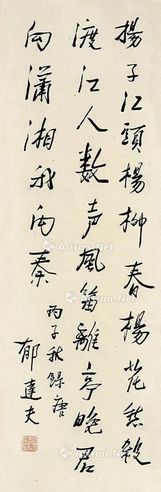 揚子江頭楊柳春楊花愁殺
渡江人数声風笛離亭晚君
向瀟湘我向秦
丙子秋録唐
郁達夫